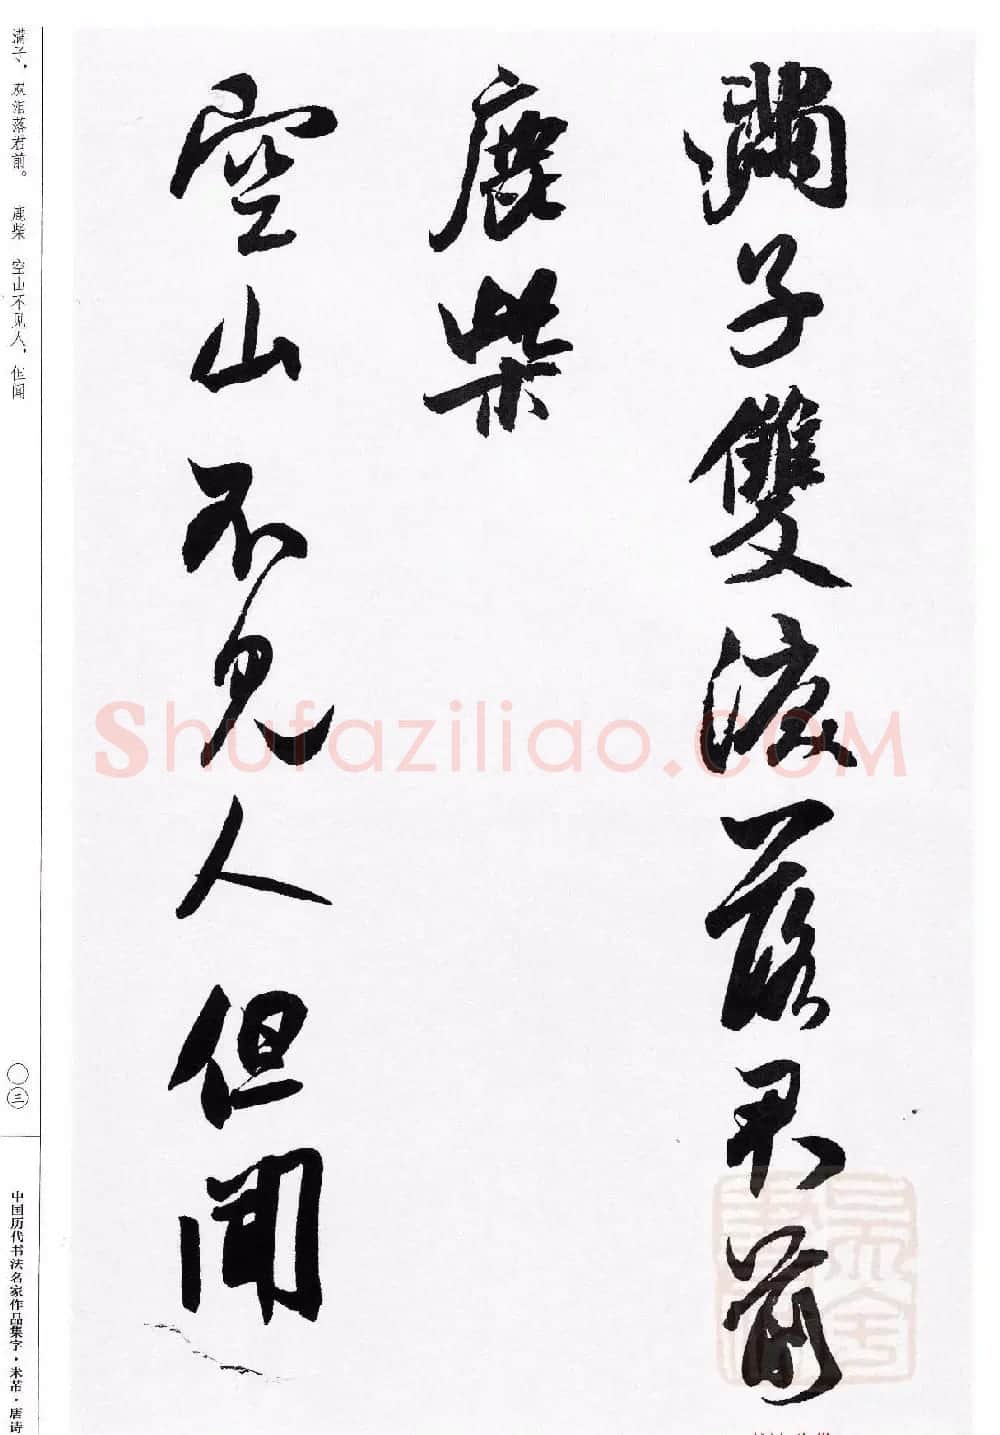 滿子雙泪落君前
鹿柴
空山不見人但聞
满子，双泪落君前。 鹿柴 空山不见人，但闻
〇三
中国历代书法名家作品集字·米芾·唐诗
Shufaziliao.COM